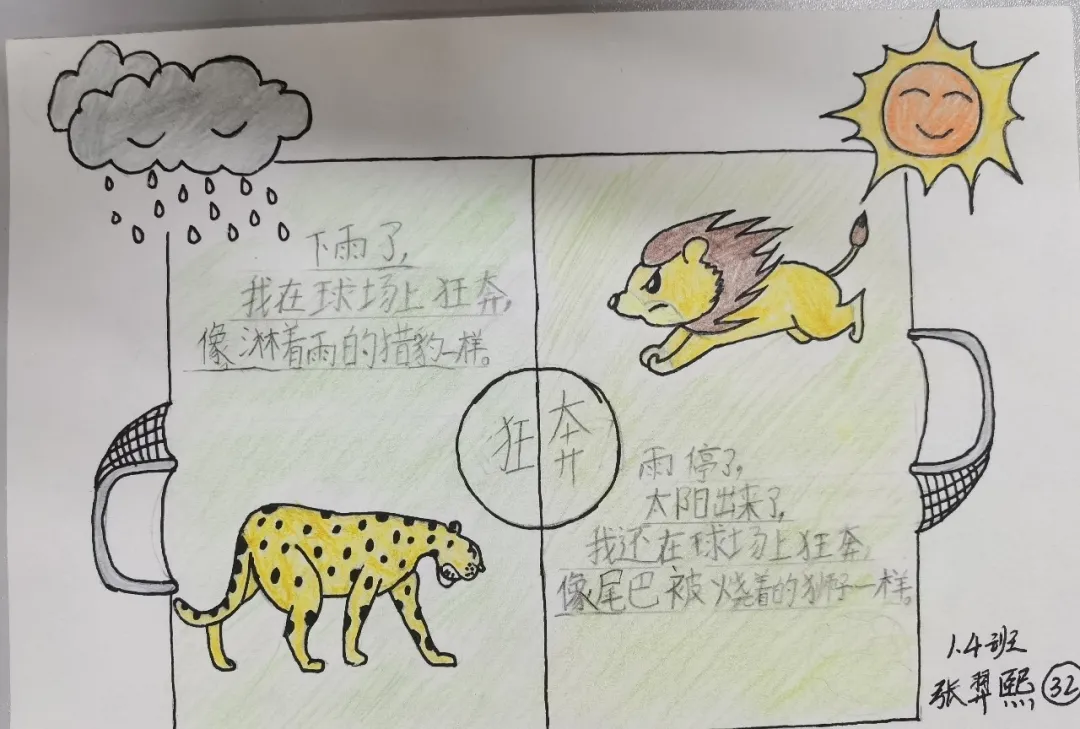 狂奔
下雨了,
我在球场上狂奔,
像淋着雨的猎豹一样。
雨停了,
太阳出来了,
我还在球场上狂奔,
像尾巴被烧着的狮子一样。
1.4班
张羿熙 32